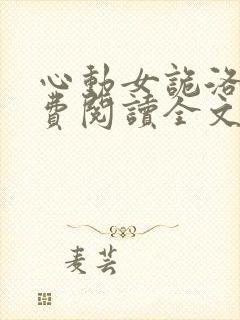 心動女詭洛
費閱讀全文
麦芸